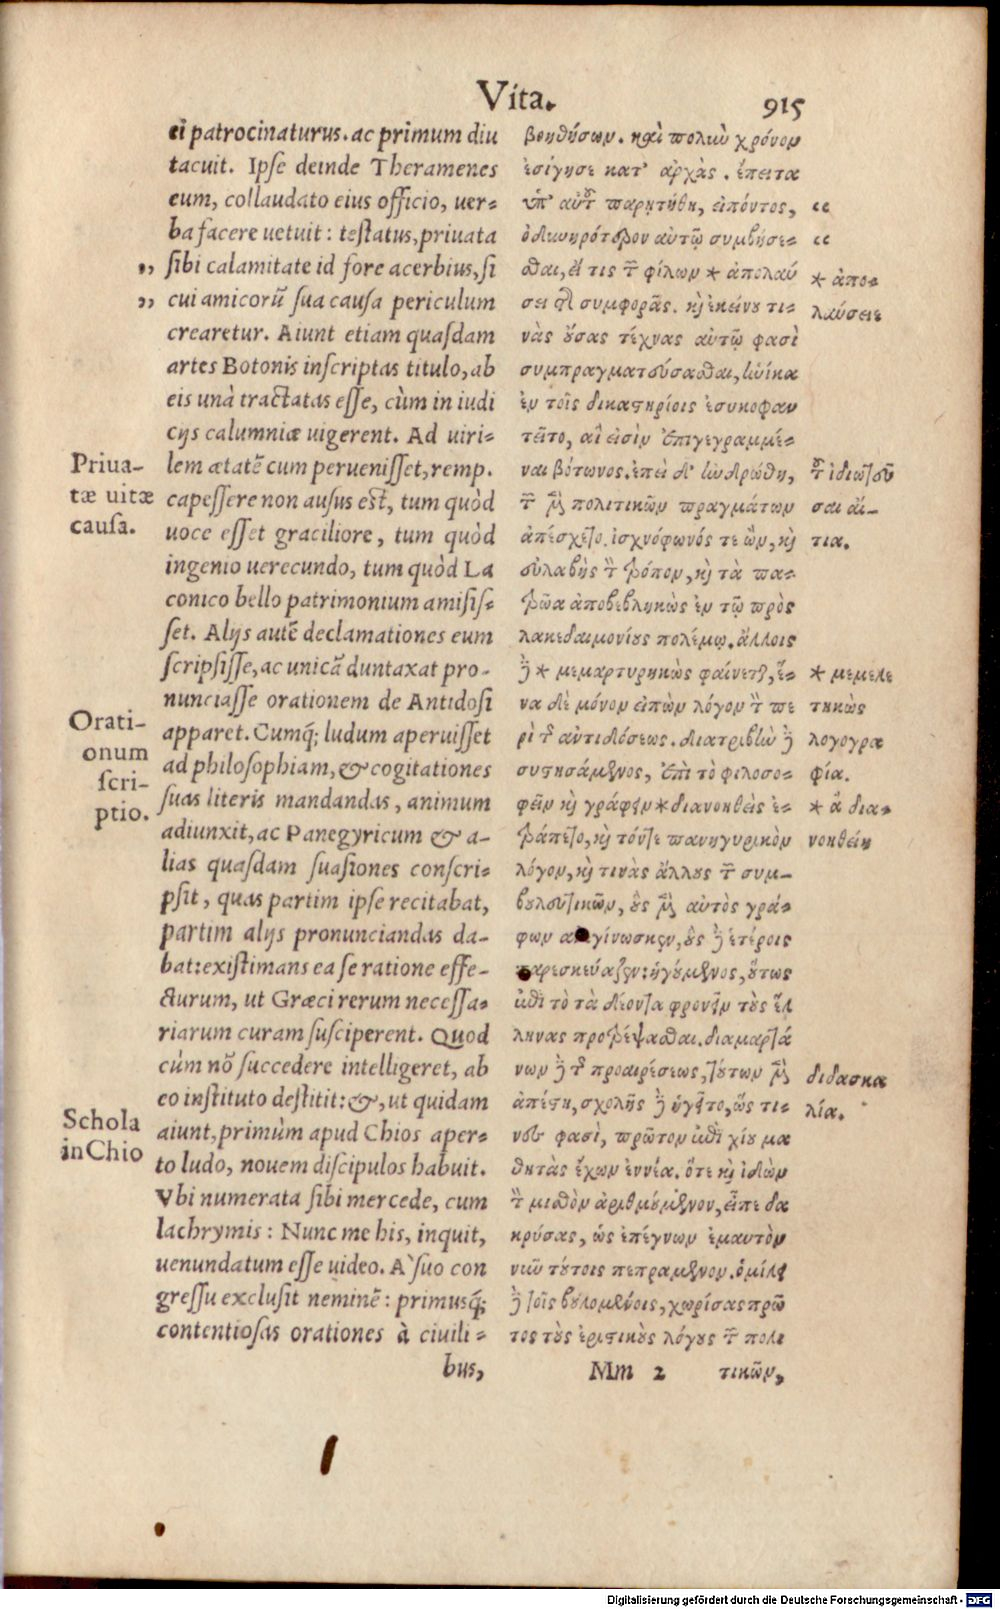 Vita. 915
ei patrocinaturus. ac primum diu
tacuit. Ipſe deinde Theramenes
eum, collaudato eius officio, uer-
ba facere uetuit: teſtatus, priuata
„ ſibi calamitate id fore acerbius, ſi
„ cui amicorũ ſua cauſa periculum
crearetur. Aiunt etiam quaſdam
artes Botonis inſcriptas titulo, ab
eis unà tractatas eſſe, cùm in iudi
cijs calumniæ uigerent. Ad uiri-
lem ætatẽ cum perueniſſet, remp.
capeſſere non auſus eſt, tum quòd
uoce eſſet graciliore, tum quòd
ingenio uerecundo, tum quòd La
conico bello patrimonium amiſiſ-
ſet. Alijs autẽ declamationes eum
ſcripſiſſe, ac unicã duntaxat pro-
nunciaſſe orationem de Antidoſi
apparet. Cumq́; ludum aperuiſſet
ad philoſophiam, & cogitationes
ſuas literis mandandas, animum
adiunxit, ac Panegyricum & a-
lias quaſdam ſuaſiones conſcri-
pſit, quas partim ipſe recitabat,
partim alijs pronunciandas da-
bat: exiſtimans ea ſe ratione effe-
cturum, ut Græci rerum neceſſa-
riarum curam ſuſciperent. Quod
cùm nõ ſuccedere intelligeret, ab
eo inſtituto deſtitit: &, ut quidam
aiunt, primùm apud Chios aper-
to ludo, nouem diſcipulos habuit.
Vbi numerata ſibi mercede, cum
lachrymis: Nunc me his, inquit,
uenundatum eſſe uideo. A' ſuo con
greſſu excluſit neminẽ: primusq́;
contentioſas orationes à ciuili-
bus,
Priua-
tæ uitæ
cauſa.
Orati-
onum
ſcri-
ptio.
Schola
in Chio
βοηθήσων. καὶ πολιὺ χρόνον
ἐσίγησε κατ' ἀρχὰς. ἔπειτα
ὑπ' αὐτοῦ παρητήθη, εἰπόντος,
ὀδυνηρότερον αὐτῷ συμβήσε-
σθαι, εἴ τις τῶν φίλων * ἀπολαύ
σει τῆς συμφορᾶς. κὶ ἐκείνου τι-
νὰς οὔσας τέχνας αὐτῷ φασὶ
συμπραγματεύσασθαι, ἡνίκα
ἐν τοῖς δικαστηρίοις ἐσυκοφαν
τεῖτο, αἵ εἰσὶν ἐπιγεγραμμέ-
ναι βότωνος. ἐπεὶ δ' ἠνδρώθη,
τῶν μὲν πολιτικῶν πραγμάτων
ἀπέσχετο. ἰσχνόφωνός τε ὢν, κὶ
εὐλαβὴς τὸν τρόπον, κὶ τὰ πα-
τρῶα ἀποβεβληκὼς ἐν τῷ πρὸς
λακεδαιμονίους πολέμῳ. ἄλλοις
δὲ * μεμαρτυρηκὼς φαίνεται, ἕ-
να δὲ μόνον εἰπὼν λόγον τὸν πε
ρὶ τῆς ἀντιδόσεως. διατριβὴν δὲ
συστησάμενος, ἐπὶ τὸ φιλοσο-
φεῖν κὶ γράφειν * διανοηθεὶς ἐ-
τράπετο, κὶ τόν τε πανηγυρικὸν
λόγον, κὶ τινὰς ἄλλους τῶν συμ-
βουλευτικῶν, οὓς μὲν αὐτὸς γρά-
φων ἀνεγίνωσκεν, οὓς δὲ ἑτέροις
παρεσκεύαζεν: ἡγούμενος, οὕτως
ἐπὶ τὸ τὰ δέοντα φρονεῖν τοὺς ἕλ
ληνας προτρέψασθαι. διαμαρτά
νων δὲ τῆς προαιρέσεως, τούτων μὲν
ἀπέστη, σχολῆς δὲ ἡγεῖτο, ὥς τι-
νες φασὶ, πρῶτον ἐπὶ χίου μα
θητὰς ἔχων ἐννέα. ὅτε κὶ ἰδὼν
τὸν μισθὸν ἀριθμούμενον, εἶπε δα
κρύσας, ὡς ἐπέγνων ἐμαυτὸν
νιῦ τούτοις πεπραμένον. ὁμίλει
δὲ τοῖς βουλομένοις, χωρίσας πρῶ
τος τοὺς ἐριστικοὺς λόγους τῶν πολι
Mm 2 τικῶν,
“
“
* ἀπο-
λαύσειε
τοῦ ἰδιωτεῦ
σαι αἰ-
τία.
* μεμελε
τηκὼς
λογογρα
φία.
* ἃ δια-
νοηθείη
διδασκα
λία.
Digitalisierung gefördert durch die Deutsche Forschungsgemeinschaft - DFG